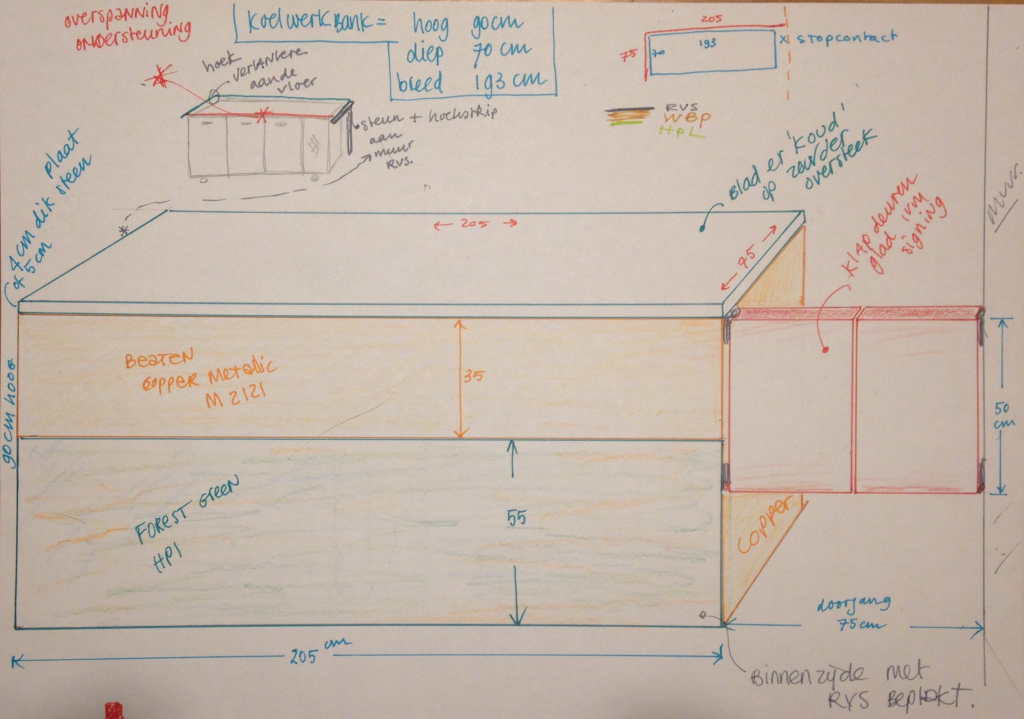 overspanning
ondersteuning
Koelwerkbank = hoog 90cm
diep 70 cm
breed 193 cm
205
75
70
193
x stopcontact
RVS
WBP
HPL
hoek
verankere
aan de
vloer
steun + hoekstrip
aan
muur
RVS.
plaat
4cm dik steen
5cm
Blad er 'koud'
op zonder
oversteek
Klapdeuren
glad ivm
signing
muur.
205
75
BEATEN
COPPER Metalic
M 2121
35
90cm hoog
50
cm
FOREST Green
HPl
55
COPPER
doorgang
75cm
205 cm
Binnenzijde met
RVS Beplakt.